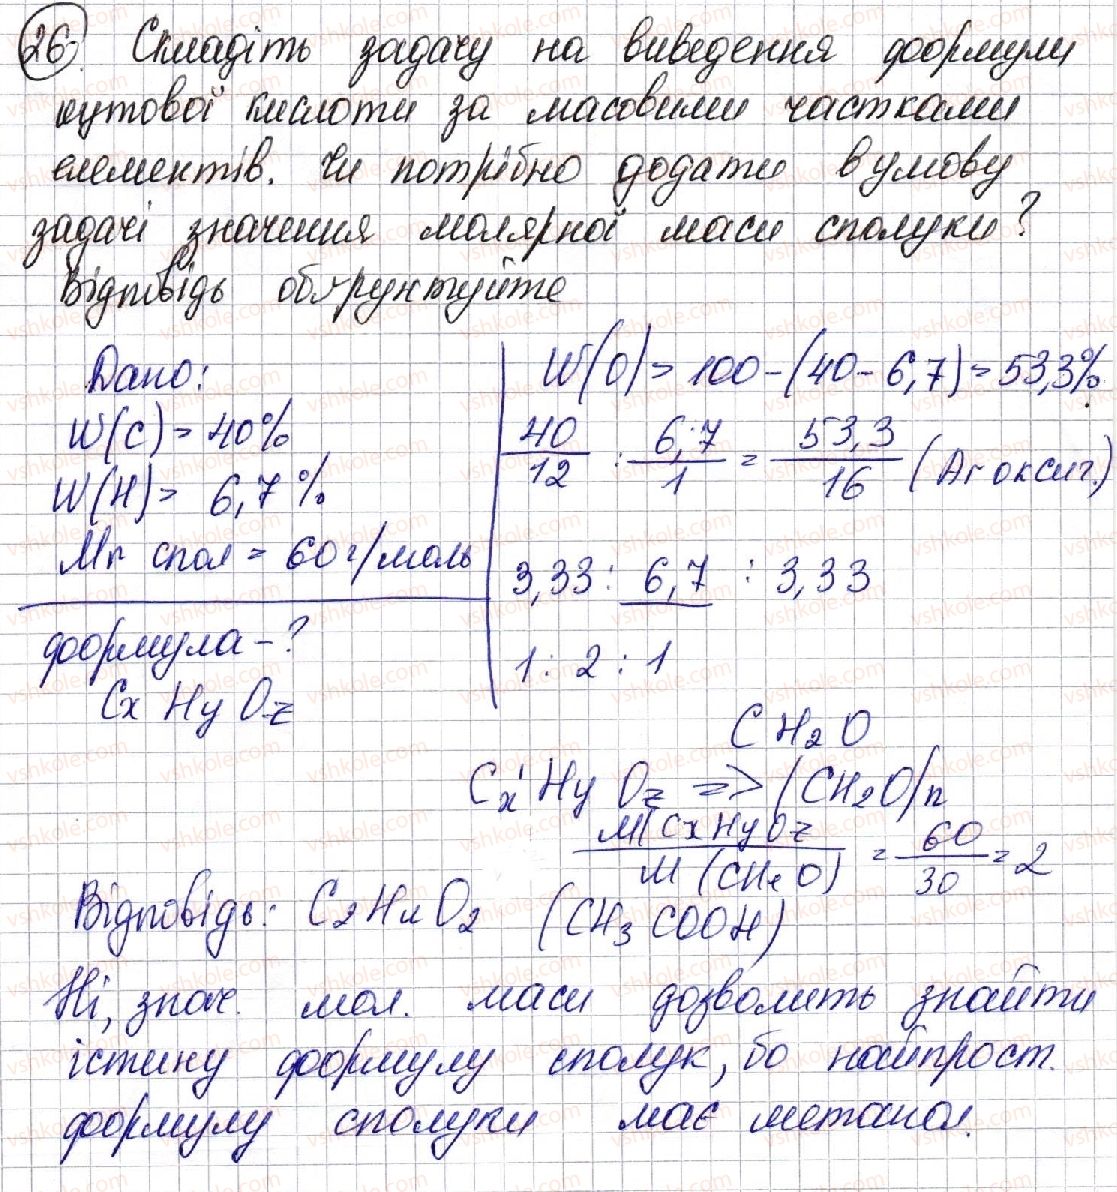 26. Складіть задачу на виведення формули
оцтової кислоти за масовими частками
елементів. Чи потрібно додати в умову
задачі значення молярної маси сполуки?
Відповідь обґрунтуйте
Дано:
W(C) = 40%
W(H) = 6,7%
Mr спол = 60 г/моль
формула - ?
Cx Hy Oz
W(O) = 100 - (40 - 6,7) = 53,3%.
40/12 : 6,7/1 = 53,3/16 (Ar оксиг.)
3,33 : 6,7 : 3,33
1 : 2 : 1
CH2O
Cx Hy Oz => (CH2O)n
M(CxHyOz)/M(CH2O) = 60/30 = 2
Відповідь: C2H4O2 (CH3COOH)
Ні, знач. мол. маси дозволить знайти
істину формулу сполук, бо найпрост.
формулу сполуки має метанал.